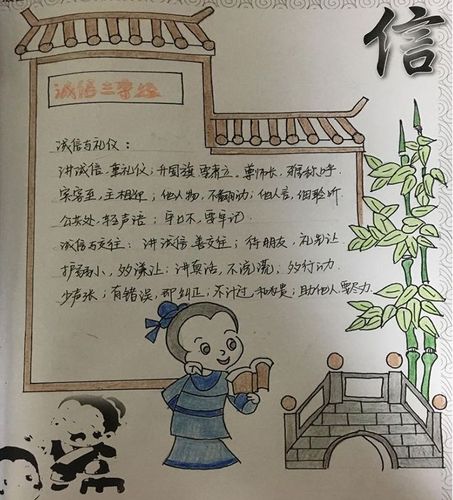 信
诚信三字经
诚信与礼仪：
讲诚信，重礼仪；升国旗，要肃立，尊师长，
宾客至，主相迎；他人物，不翻动；他人言，细聆听
公共处，轻声语；
诚信与交往：讲诚信，善交往；待朋友，礼为让
护弱小，多谦让；讲真话，不说谎，多行动
少声张；有错误，即纠正；不计过，和为贵；助他人，要尽力